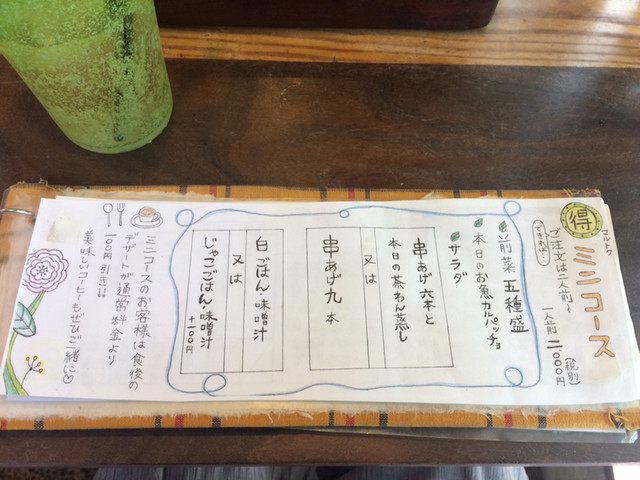 マルトク
得 ミニコース
できれば…
ご注文は二人前〜
一人前 二〇〇〇円(税別)
前菜 五種盛
本日のお魚カルパッチョ
サラダ
串あげ 六本と
本日の茶わん蒸し
又は
串あげ 九本
白ごはん・味噌汁
又は
じゃこごはん・味噌汁
+一〇〇円
ミニコースのお客様は食後の
デザートが通常料金より
一〇〇円引き!!
美味しいコーヒーもぜひご一緒に♡